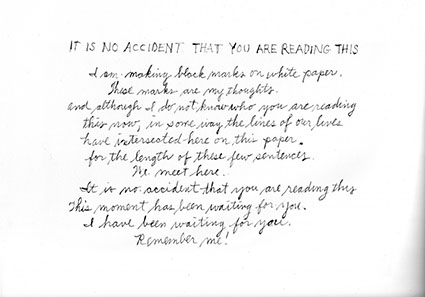 IT IS NO ACCIDENT THAT YOU ARE READING THIS
I am making black marks on white paper.
These marks are my thoughts.
and although I do not know who you are reading
this now, in some way the lines of our lives
have intersected here on this paper.
for the length of these few sentences.
We meet here.
It is no accident that you are reading this
This moment has been waiting for you.
I have been waiting for you.
Remember me!